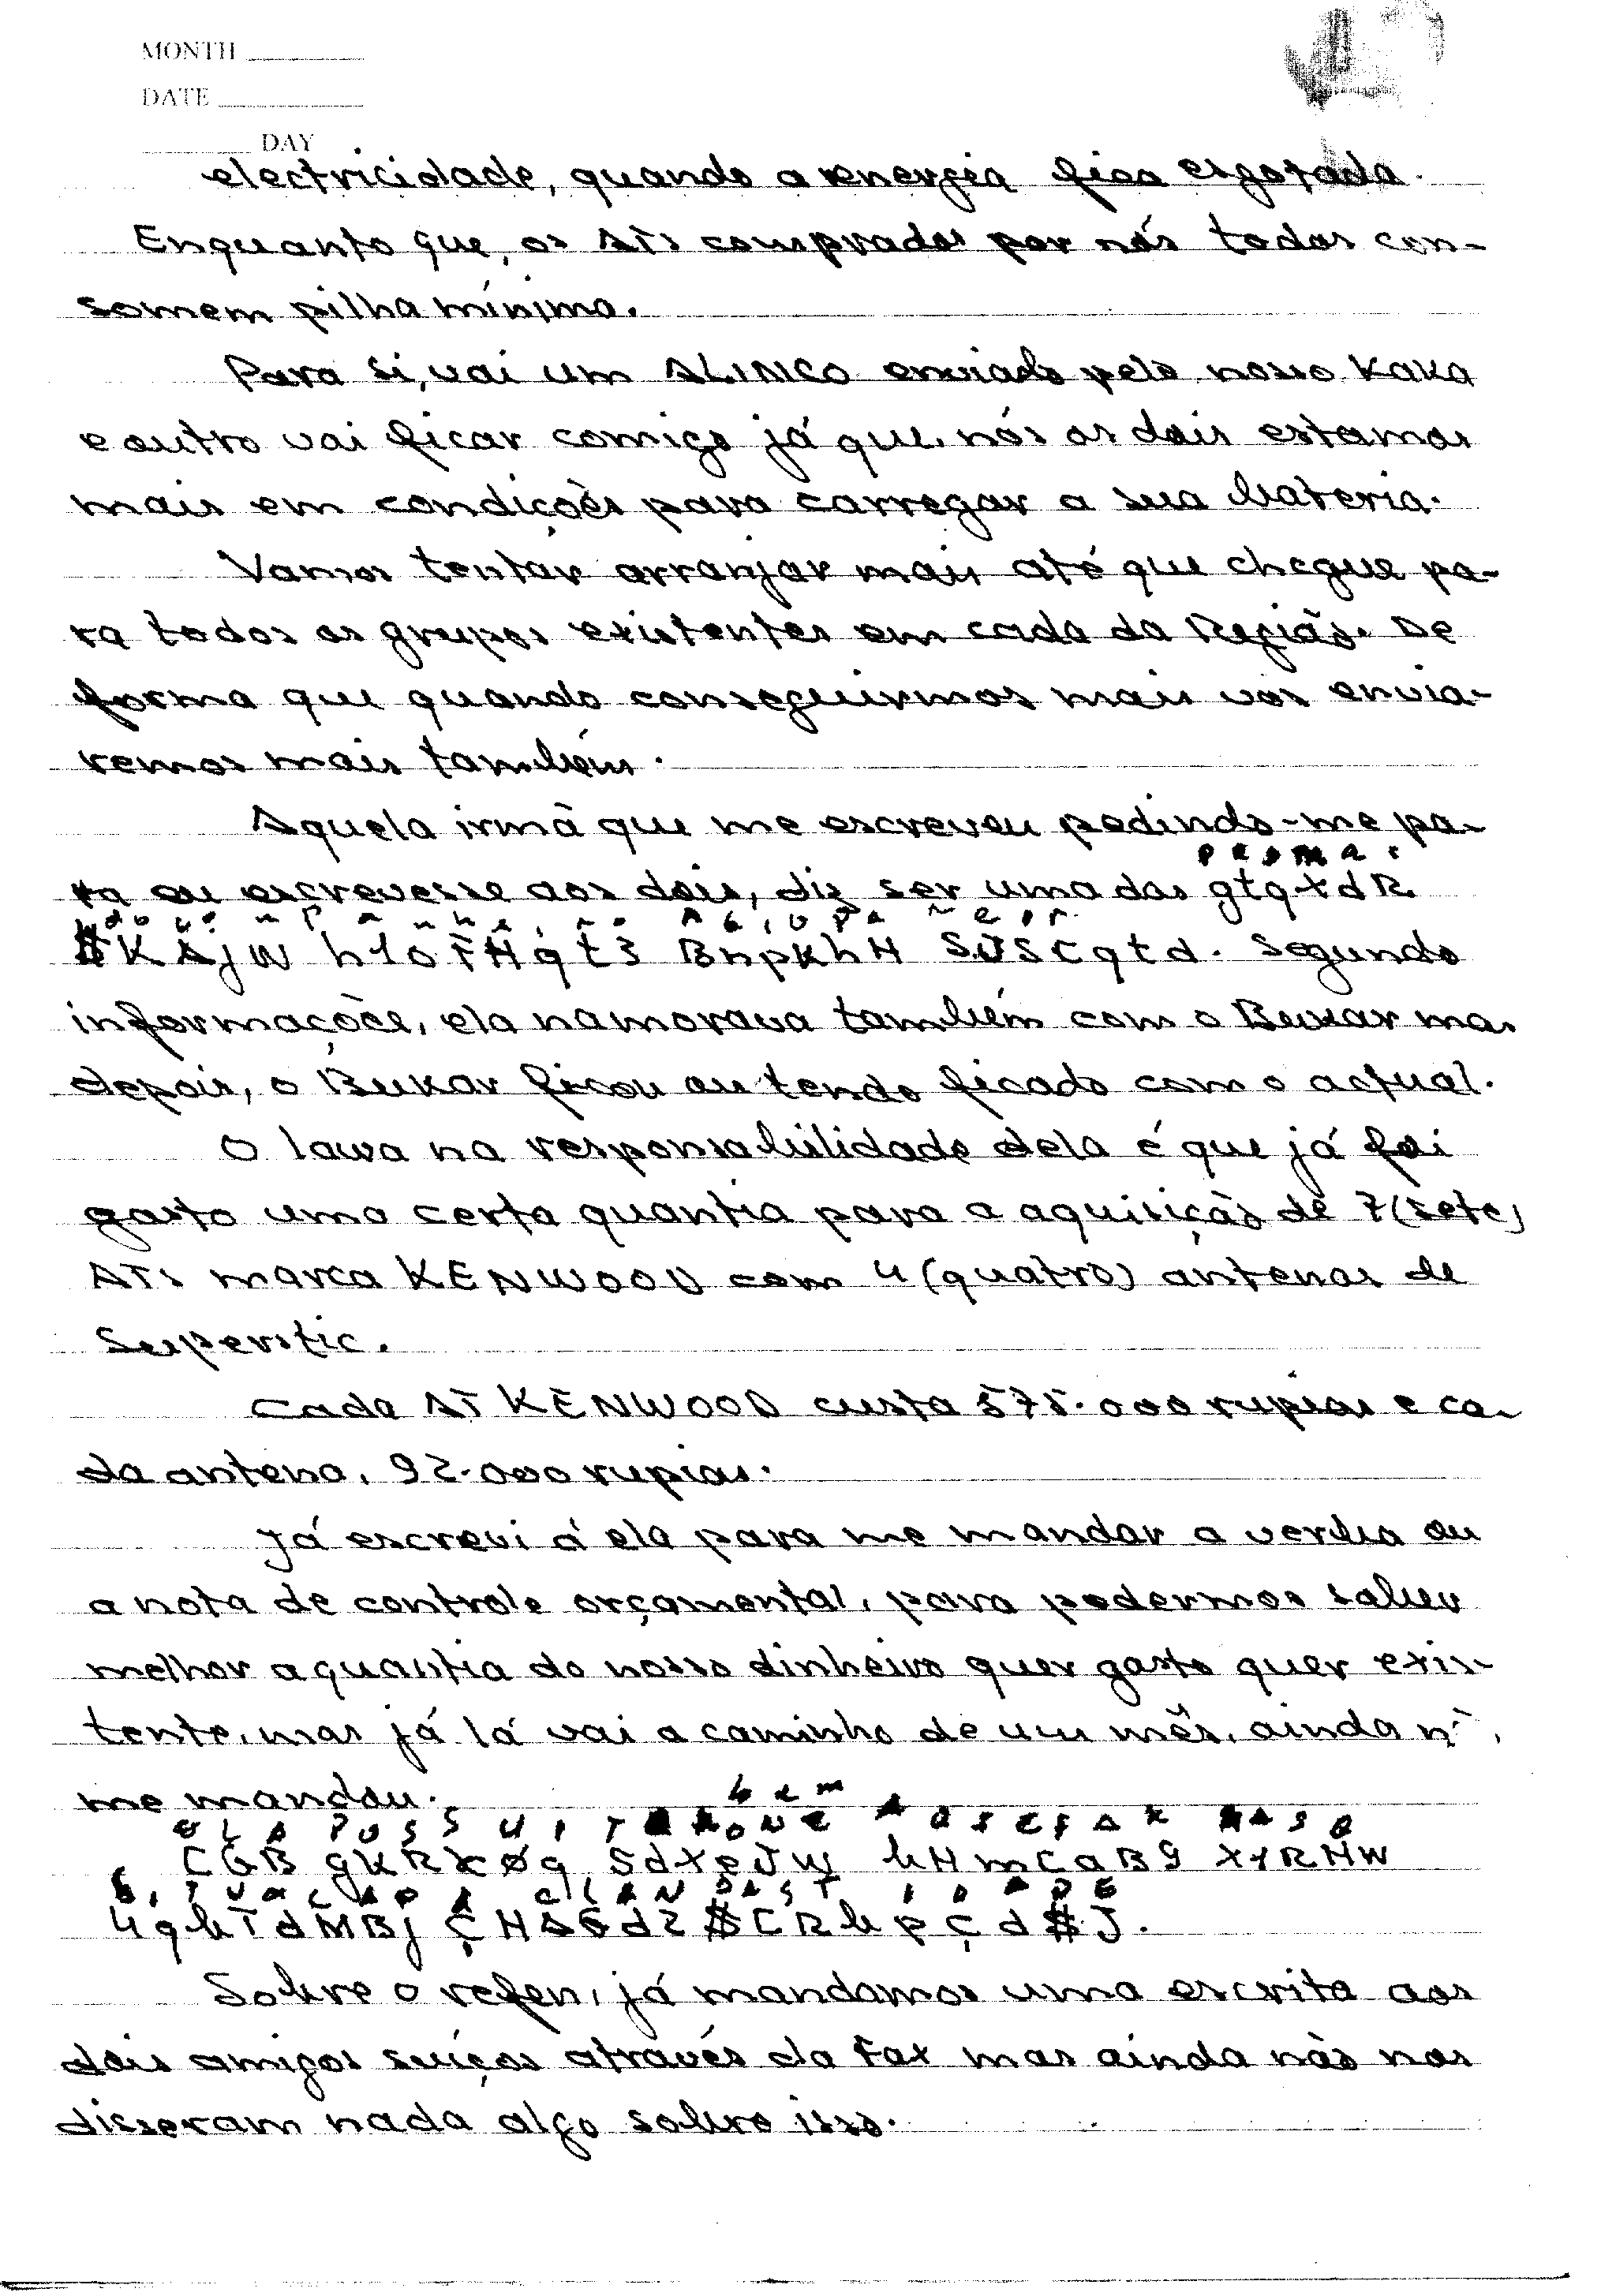 MONTH
DATE
DAY
electricidade, quando a energia fica esgotada.
Enquanto que, os ATs comprados por nós todos con-
somem pilha mínima.
Para si, vai um ALINCO enviado pelo nosso Kaka
e outro vai ficar comigo já que, nós os dois estamos
mais em condições para carregar a sua bateria.
Vamos tentar arranjar mais até que chegue pa-
ra todos os grupos existentes em cada da Região. De
forma que quando conseguirmos mais vos envia-
remos mais também.
Aquela irmã que me escreveu pedindo-me pa-
ra eu escrevesse aos dois, diz ser uma das gtqtdR
$KAjW h1oFHqt3 BnpKhH SJSCqtd. Segundo
informações, ela namorava também com o Bukar mas
depois, o Bukar ficou ou tendo ficado com o actual.
O lawa na responsabilidade dela é que já foi
gasto uma certa quantia para a aquisição de 7 (sete)
ATs marca KENWOOD com 4 (quatro) antenas de
Superstic.
Cada AT KENWOOD custa 575.000 rupias e ca-
da antena, 92.000 rupias.
Já escrevi á ela para me mandar a verba ou
a nota de controle orçamental, para podermos saber
melhor a quantia do nosso dinheiro quer gasto quer exis-
tente, mas já lá vai a caminho de um mês, ainda ñ
me mandou.
bem
ELA POSSUI
CGB gKRxøq SdXeJW hHmCaB9 X1RHW
4qhTdMBj ÇHAGd2$CRhpÇd$J.
Sobre o refen, já mandamos uma escrita aos
dois amigos suíços através da Fax mas ainda não nos
disseram nada algo sobre isso.